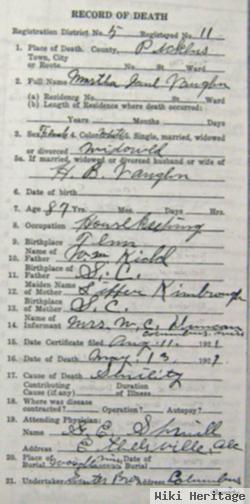 RECORD OF DEATH
Registration District No. 5 Registered No. 11
1. Place of Death. County, Pickens
Town, City
or Route No. St Ward
2. Full Name Martha Jane Vaughn
(a) Residency No. St Ward
(b) Length of Residence where death occurred:
Yrs. Mos. Days
3. Sex Female 4. Color White 5. Single, married, widowed
or divorced Widowed
5a. If married, widowed or divorced husband or wife of
H. B. Vaughn
6. Date of birth
7. Age 87 Yrs. Mos. Days Hrs.
8. Occupation Housekeeping
9. Birthplace Tenn
10. Name of Father Kidd
11. Birthplace of Father S. C.
12. Maiden Name of Mother Kimbrough
13. Birthplace of Mother S. C.
14. Name of Informant Mrs. W. C. Duncan
15. Date Certificate filed Aug 11. 1921
16. Date of Death May 13 192
17. Cause of Death Senility
Contributing Duration
Cause (if any) of Illness
18. Where was disease
contracted? Operation? Autopsy?
19. Attending Physician:
Name
Address Ethelsville, Ala
20. Place of Burial Date of
21. Undertaker Address Columbus
Wiki Heritage